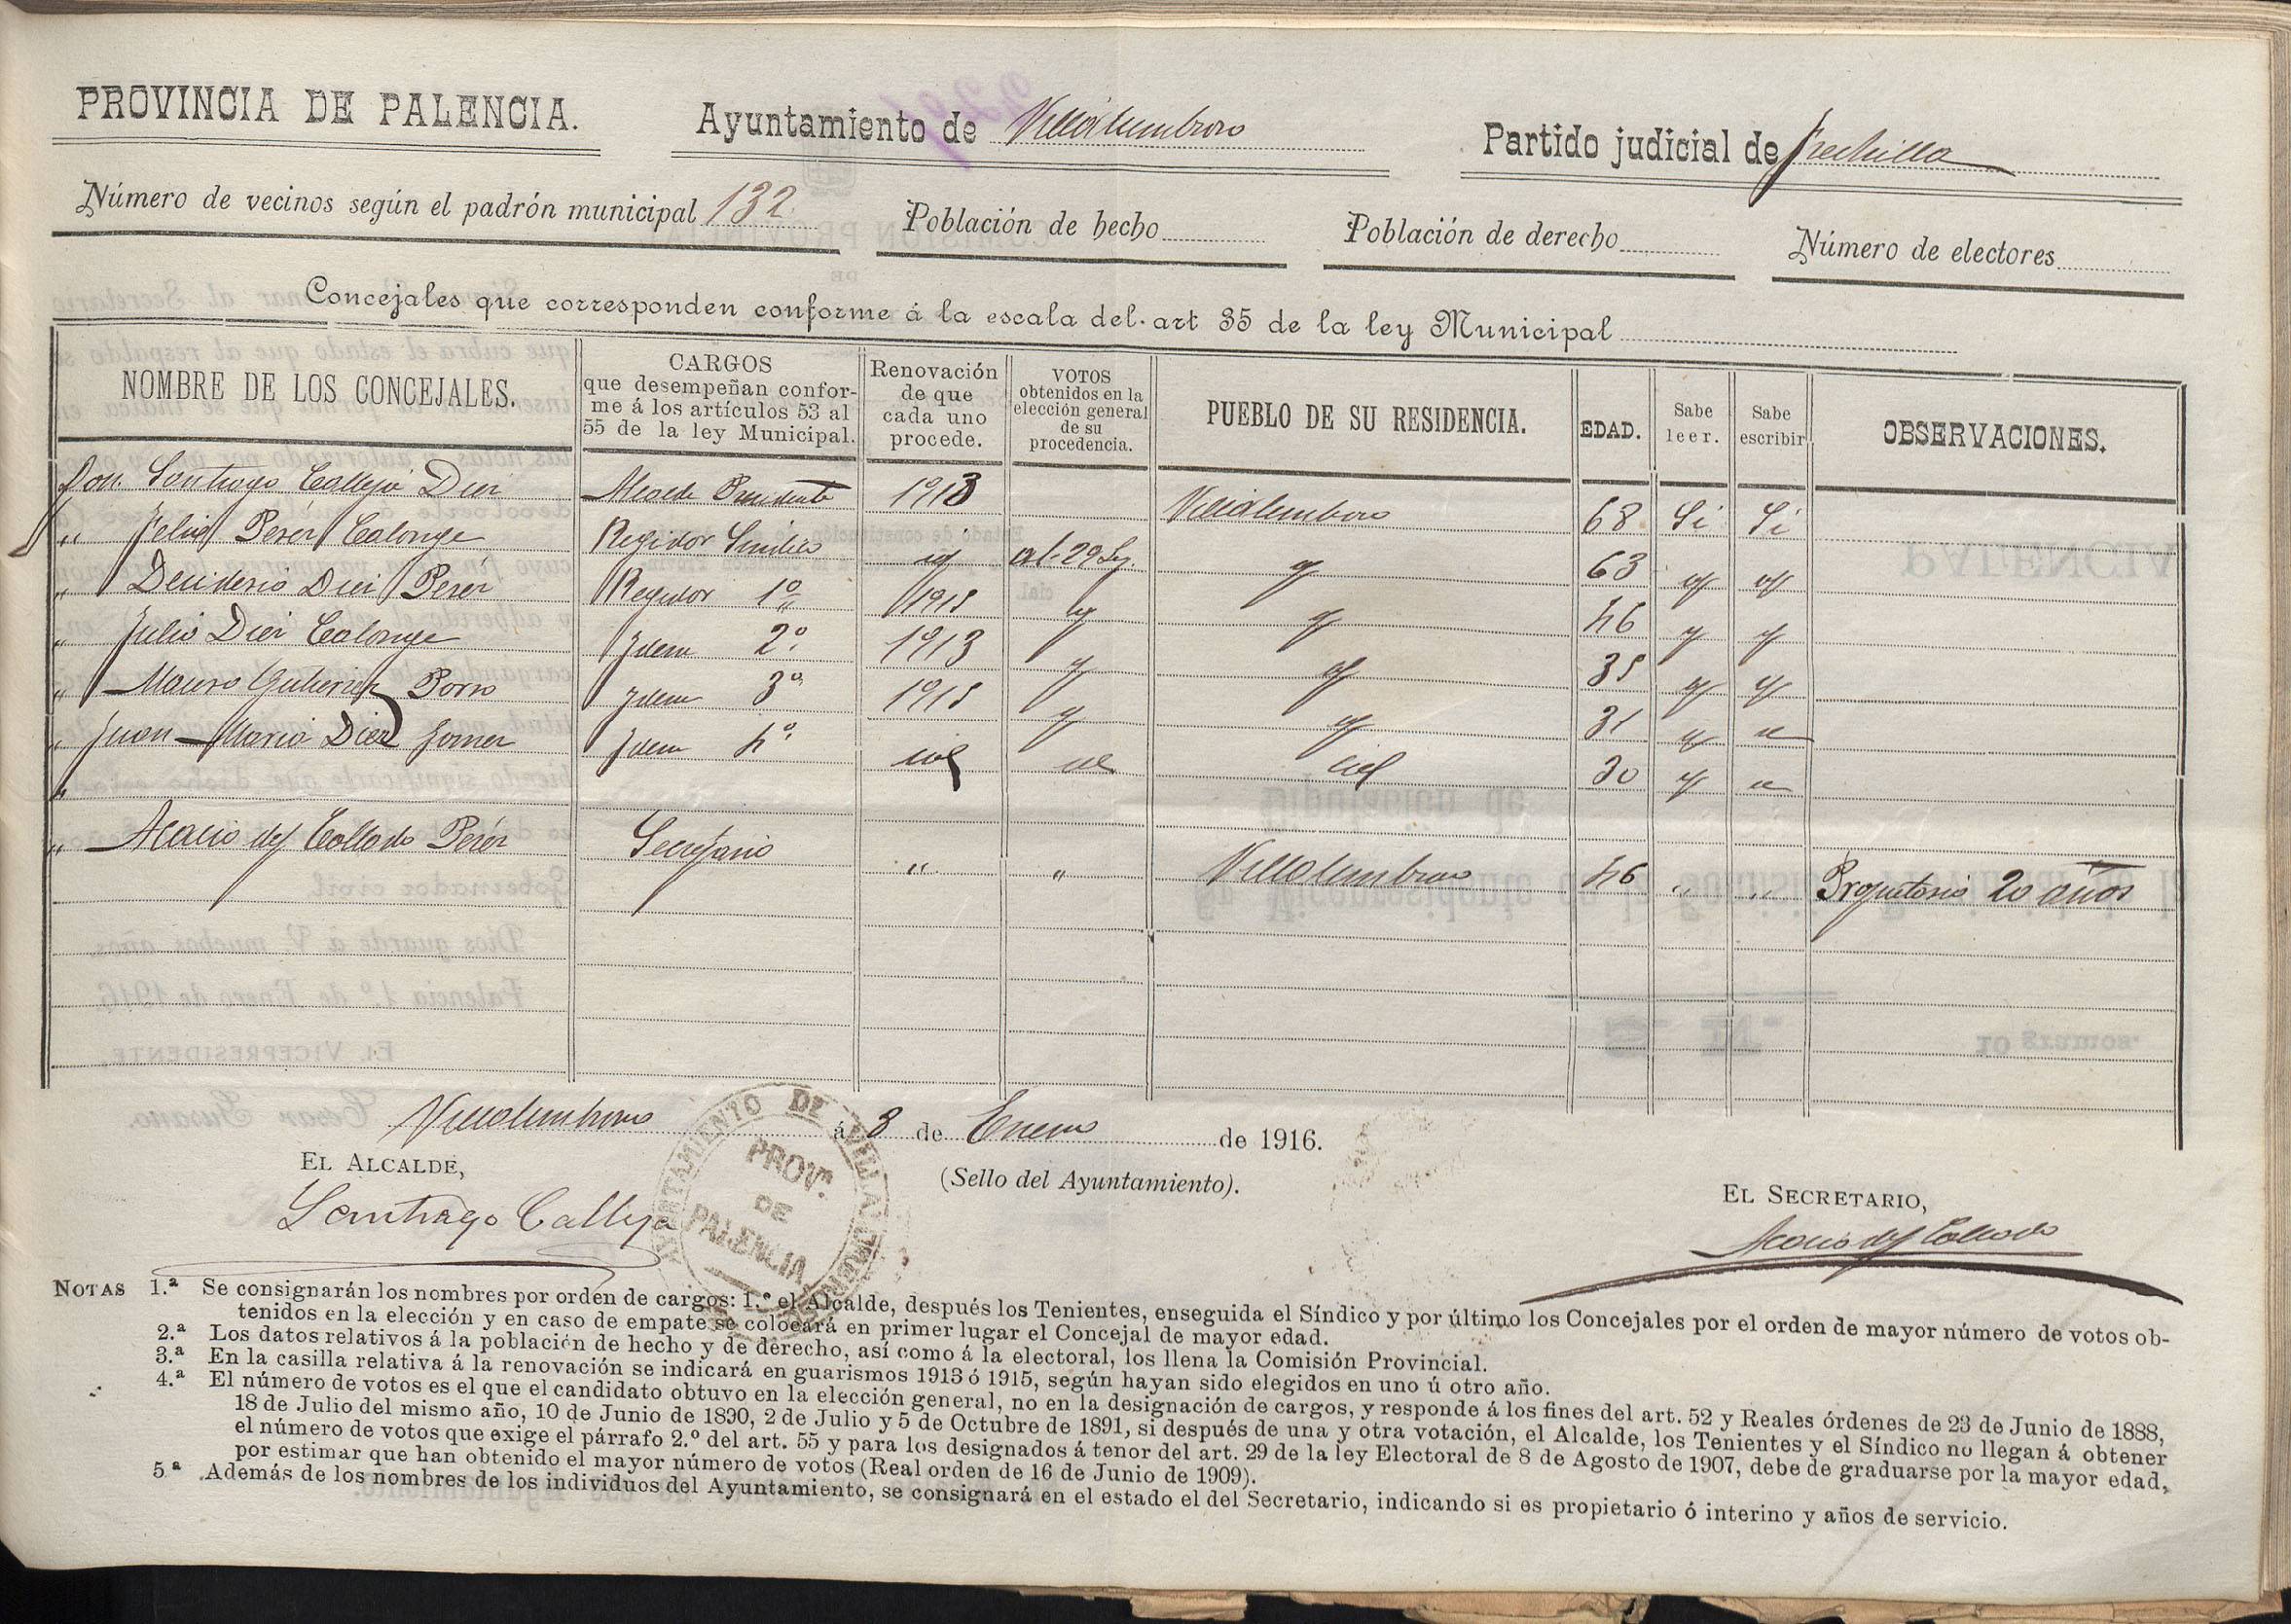 PROVINCIA DE PALENCIA.
Ayuntamiento de Villalumbroso
Partido judicial de Frechilla
Número de vecinos según el padrón municipal 132
Población de hecho
Población de derecho
Número de electores
Concejales que corresponden conforme á la escala del art 35 de la ley Municipal
NOMBRE DE LOS CONCEJALES. CARGOS que desempeñan conforme á los artículos 53 al 55 de la ley Municipal. Renovación de que cada uno procede. VOTOS obtenidos en la elección general de su procedencia. PUEBLO DE SU RESIDENCIA. EDAD. Sabe leer. Sabe escribir OBSERVACIONES.
Don Santiago Calleja Diez Alcalde Presidente 1913 Villalumbroso 68 Si Si
" Felix Perez Calonge Regidor Sindico id art. 29 Ley id 63 id id
" Desiderio Diez Perez Regidor 1º 1915 id id 46 id id
" Julio Diez Calonge Idem 2º 1913 id id 35 id id
" Mauro Gutierrez Porro Idem 3º 1915 id id 31 id id
" Juan Maria Diez Gomez Idem 4º id id id 30 id id
" Acacio del Collado Perez Secretario " " Villalumbroso 46 " " Propietario 20 años
Villalumbroso á 8 de Enero de 1916.
EL ALCALDE,
(Sello del Ayuntamiento).
EL SECRETARIO,
Santiago Calleja
Acacio del Collado
AYUNTAMIENTO DE VILLALUMBROSO
PROVª.
DE
PALENCIA
NOTAS 1.ª Se consignarán los nombres por orden de cargos: 1.º el Alcalde, después los Tenientes, enseguida el Síndico y por último los Concejales por el orden de mayor número de votos ob-
tenidos en la elección y en caso de empate se colocará en primer lugar el Concejal de mayor edad.
2.ª Los datos relativos á la población de hecho y de derecho, así como á la electoral, los llena la Comisión Provincial.
3.ª En la casilla relativa á la renovación se indicará en guarismos 1913 ó 1915, según hayan sido elegidos en uno ú otro año.
4.ª El número de votos es el que el candidato obtuvo en la elección general, no en la designación de cargos, y responde á los fines del art. 52 y Reales órdenes de 23 de Junio de 1888,
18 de Julio del mismo año, 10 de Junio de 1890, 2 de Julio y 5 de Octubre de 1891, si después de una y otra votación, el Alcalde, los Tenientes y el Síndico no llegan á obtener
el número de votos que exige el párrafo 2.º del art. 55 y para los designados á tenor del art. 29 de la ley Electoral de 8 de Agosto de 1907, debe de graduarse por la mayor edad,
por estimar que han obtenido el mayor número de votos (Real orden de 16 de Junio de 1909).
5.ª Además de los nombres de los individuos del Ayuntamiento, se consignará en el estado el del Secretario, indicando si es propietario ó interino y años de servicio.